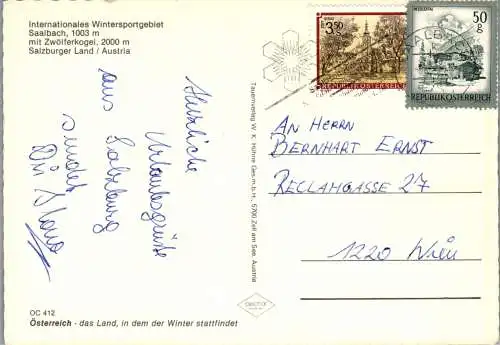 Internationales Wintersportgebiet
Saalbach, 1003 m
mit Zwölferkogel, 2000 m
Salzburger Land / Austria
Herzliche
Urlaubsgrüße
aus Salzburg
sendet
OC 412
Österreich - das Land, in dem der Winter stattfindet
Tauernverlag W. K. Höhne Ges.m.b.H., 5700 Zell am See, Austria
3.50
S
REPUBLIK ÖSTERREICH
50
g
REPUBLIK ÖSTERREICH
AN HERRN
BERNHART ERNST
RECLAMGASSE 27
1220 Wien